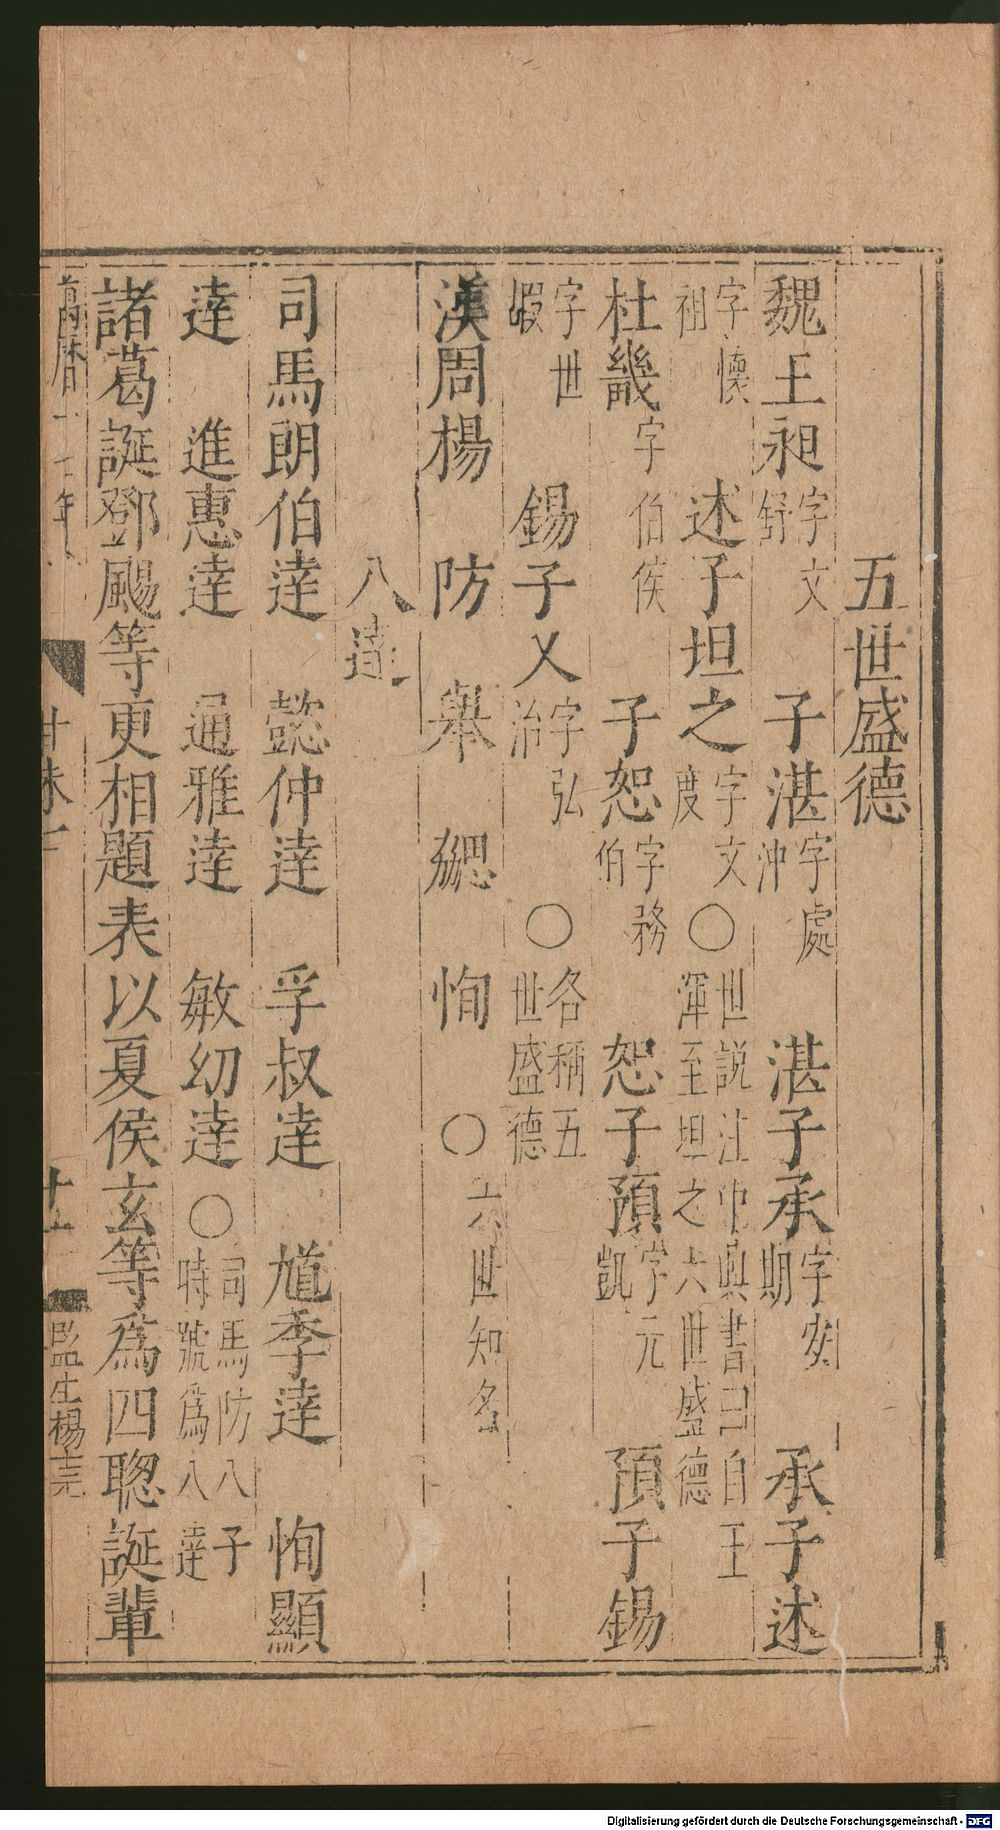 五世盛德
魏王昶字文舒 子湛字處沖 湛子承字安期 承子述
字懷祖 述子坦之字文度〇世説注中興書曰自王渾至坦之六世盛德
杜畿字伯侯 子恕字務伯 恕子預字元凱 預子錫
字世嘏 錫子乂字弘治 〇各稱五世盛德
漢周楊 防 舉 勰 恂 〇六世知名
八達
司馬朗伯達 懿仲達 孚叔達 馗季達 恂顯
達 進惠達 通雅達 敏幼達〇司馬防八子時號為八達
諸葛誕鄧颺等更相題表以夏侯玄等為四聰誕輩
萬曆十七年 卷 十一 監生楊
Digitalisierung gefördert durch die Deutsche Forschungsgemeinschaft - DFG